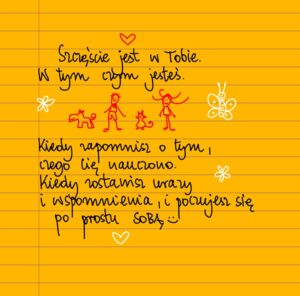 Szczęście jest w Tobie.
W tym czym jesteś.
Kiedy zapomnisz o tym,
czego Cię nauczono.
Kiedy zostawisz urazy
i wspomnienia, i poczujesz się
po prostu SOBĄ